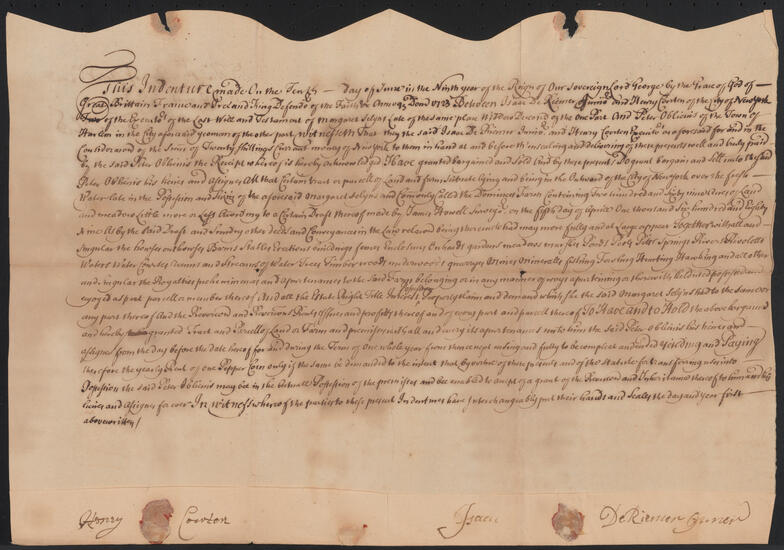 This Indenture made On the Tenth day of June in the Ninth year of the Reign of Our Sovereign Lord George by the Grace of God of
Great Brittain France and Ireland King Defender of the Faith &c Annoq Dom 1723 Between Isaac De Riemer Junr and Henry Coerten of the City of New York
Two of the Executrs of the Last Will and Testament of Margaret Selyns Late of the same place Widdow Deceased of the One Part And Peter Oblienis of the Town of
Harlem in the City aforesaid yeoman of the other part Witnesseth That they the said Isaac De Riemer Junior and Henry Coerten Executrs as aforesaid for and in the
Consideration of the Sume of Twenty Shillings Currant money of New York to them in hand at and before the ensealing and delivering of these presents well and truly paid
by the said Peter Oblienis the Receipt whereof is hereby acknowledged Have granted bargained and Sold And by these presents Do grant bargain and sell unto the said
Peter Oblienis his heires and Assignes All that Certain tract or parcell of Land and farm Scituate lying and being in the Outward of the City of New York over the fresh
Water late in the Possession and Seizin of the aforesaid Margaret Selyns and Comonly Called the Dominies Farm Containing Two hundred and Eighty nine Acres of Land
and meadow Little more or Less According to a Certain Draft thereof made by James Howell Surveyr on the fifth day of Aprill One thousand Six hundred and Eighty
Nine As by the said Draft and Sundry other deeds and Conveyances in the Law relacon being thereunto had may more fully and at Large appear Together with all and
Singular the houses outhouses Barns Stables Erections buildings fences Enclosures Orchards gardens meadows marshes Ponds Pools Pitts Springs Rivers Rivoletts
Waters Water Courses runns and Streams of Water Trees Timber woods underwoods quarryes Mines mineralls fishing Fowling Hunting Hawking and all other
and singular the Royalties preheminences and Apurtenances to the said Farm belonging or in any manner of ways apurtaining or therewith held used possessed and
enjoyed as part parcell or member thereof And all the Estate Right Title Interest Possession Property claim and demand which she the said Margaret Selyns had to the same or
any part thereof And the Revercon and Revercons Rents Issues and profitts thereof and of every part and parcell thereof To Have and to Hold the above bargained
and hereby granted Tract and Parcell of Land or Farm and premisses with all and every its apurtenances unto him the said Peter Oblienis his heires and
assignes from the day before the date hereof for and during the Term of One whole year from thence next ensuing and fully to be compleat and Ended Yeilding and Paying
therefore the yearly Rent of one Pepper Corn only if the same be demanded to the intent that by vertue of these presents and of the Statute for transferring uses into
Possession the said Peter Oblienis may be in the Actuall Possession of the premisses and bee enabled to accept of a grant of the Revercon and Inheritance thereof to him and his
heires and Assignes for ever In Witness whereof the parties to these present Indentures have Interchangeably put their hands and Seales the day and year first
above written /
Henry Coerten Isaac De Riemer Junier